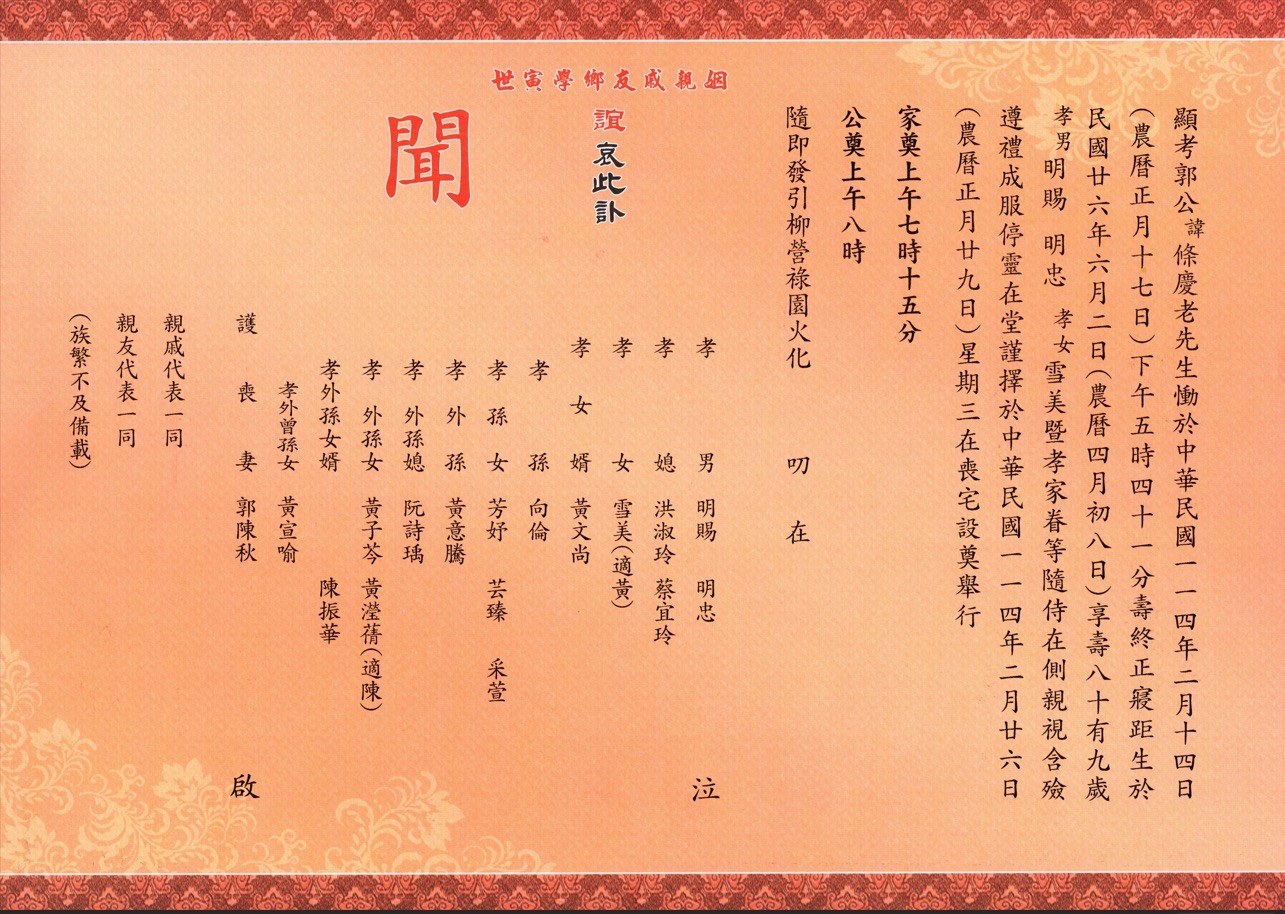 顯考郭公諱條慶老先生慟於中華民國一一四年二月十四日
(農曆正月十七日)下午五時四十一分壽終正寢距生於
民國廿六年六月二日(農曆四月初八日)享壽八十有九歲
孝男明賜 明忠 孝女雪美暨孝家眷等隨侍在側親視含殮
遵禮成服停靈在堂謹擇於中華民國一一四年二月廿六日
(農曆正月廿九日)星期三在喪宅設奠舉行
家奠上午七時十五分
公奠上午八時
隨即發引柳營祿園火化
叨在
姻親戚友鄉學寅世
誼哀此訃
聞
孝男 明賜 明忠 泣
孝媳 洪淑玲 蔡宜玲
孝女 雪美(適黃)
孝女婿 黃文尚
孝孫 向倫
孝孫女 芳妤 芸臻 采萱
孝外孫 黃意騰
孝外孫媳 阮詩瑀
孝外孫女 黃子芩 黃瀅蒨(適陳)
孝外孫女婿 陳振華
孝外曾孫女 黃宣喻
護喪妻 郭陳秋 啟
親戚代表一同
親友代表一同
(族繁不及備載)